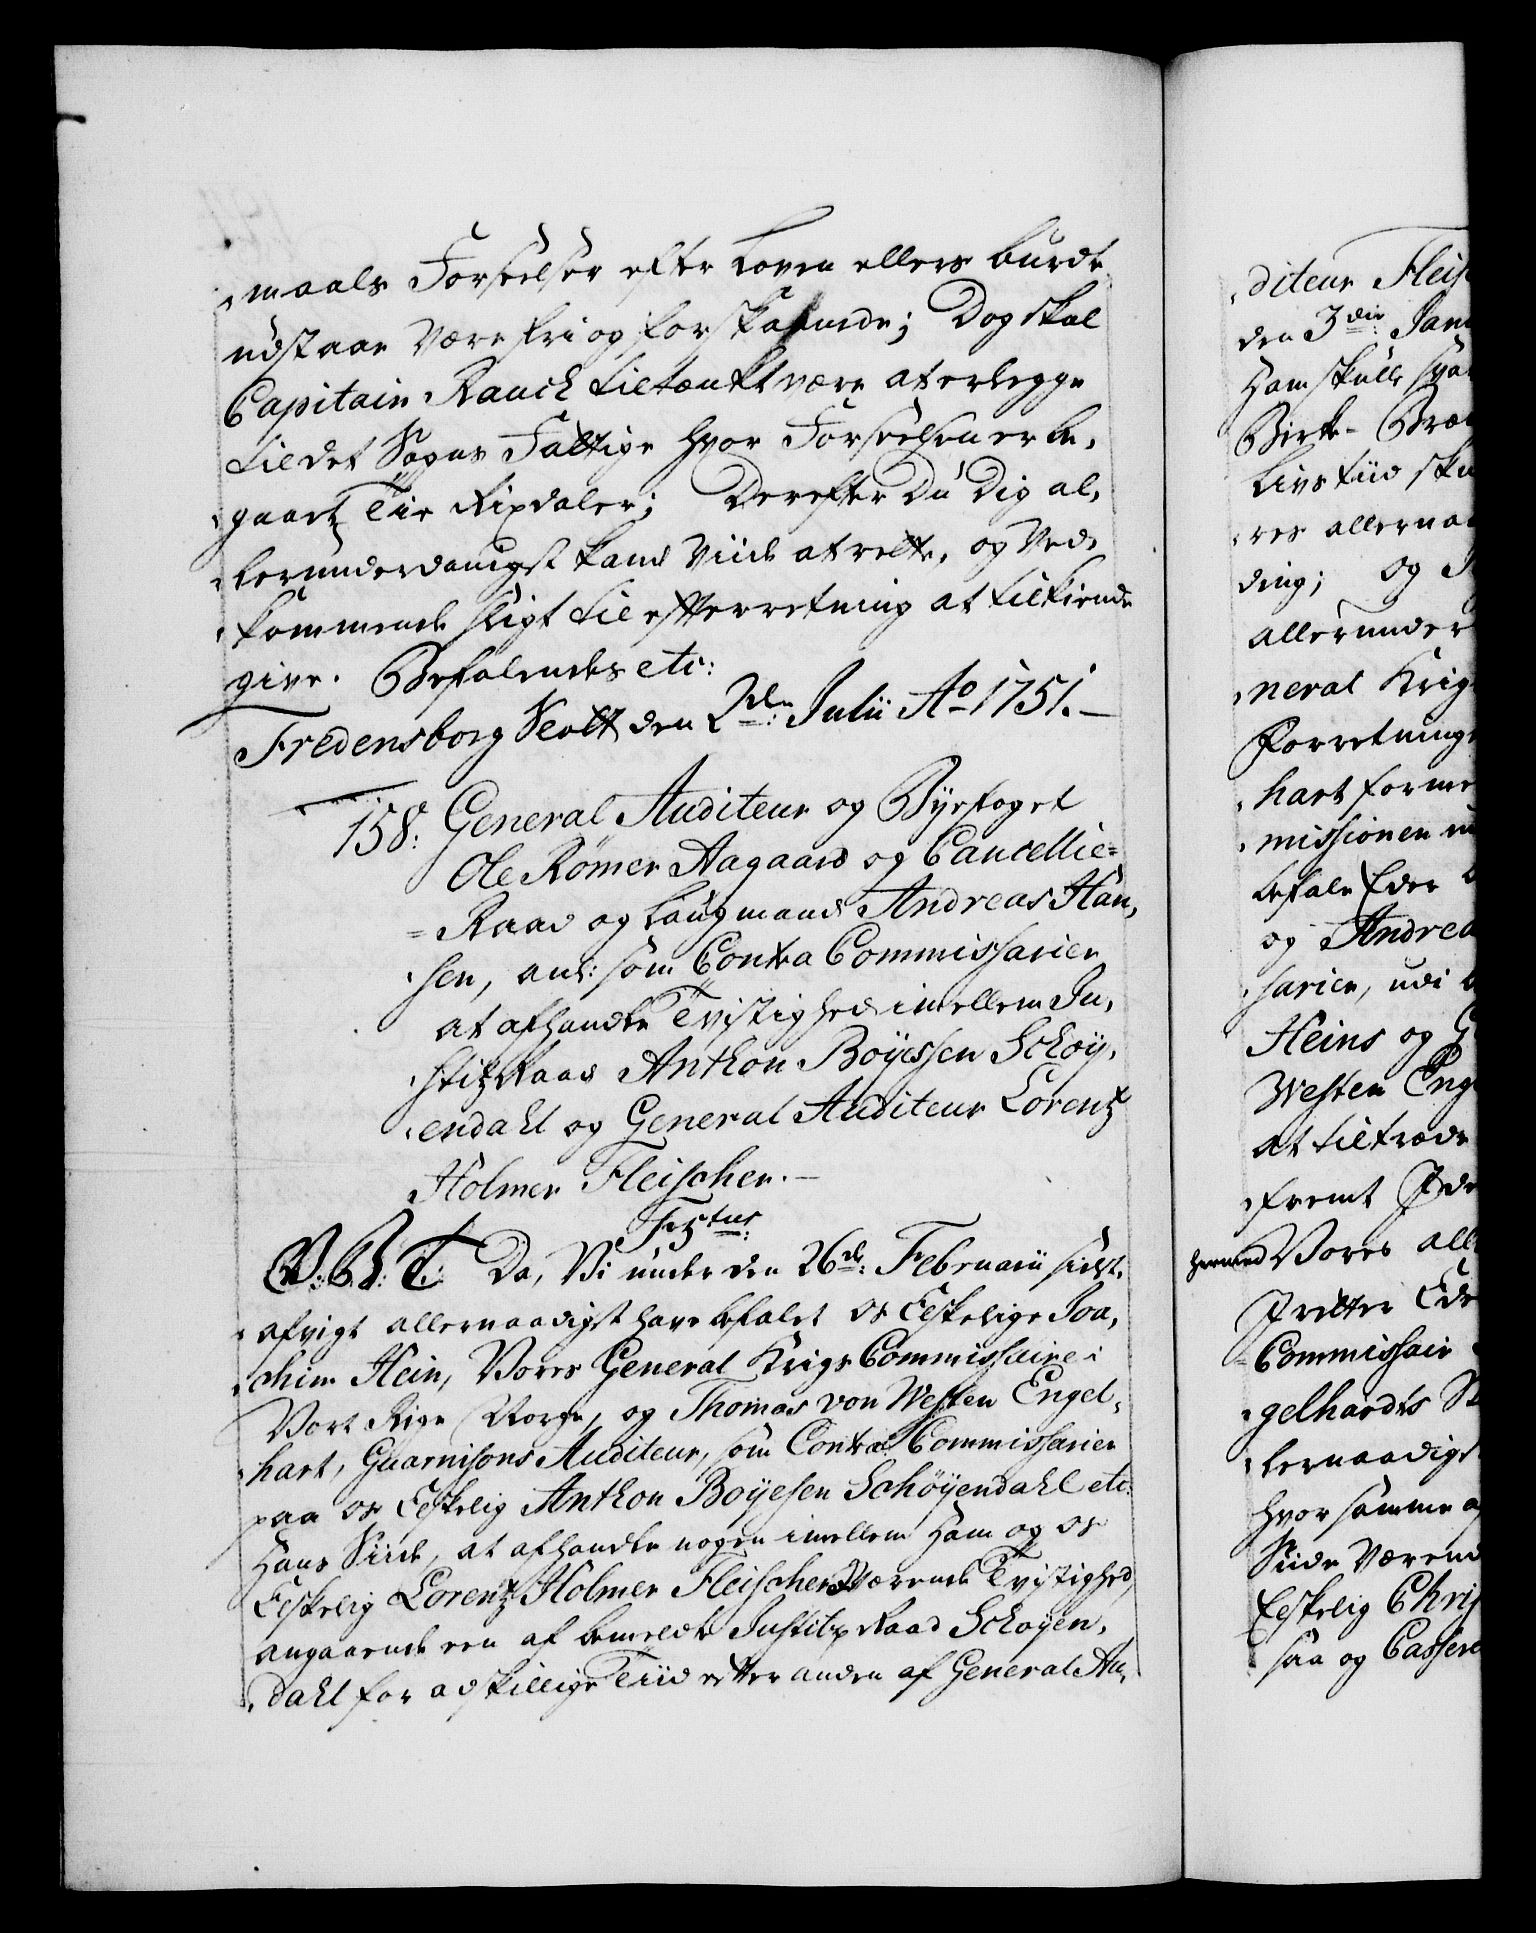 maals Forseelser efter Loven ellers burde
udstaae være fri og forskaanede; Dog skal
Capitain Rauch tiltænkt være at erlegge
til det Sogns Fattige hvor Forseelsen er be-
gaaet Tie Rixdaler; Derefter Du Dig al-
lerunderdanigst kand viide at rette, og Ved-
kommende sligt til efterretning at tilkiende
give. Befalendes etc:
Fredensborg Slott den 2de: Julii Ao 1751.
158. General Auditeur og Byefoget
Ole Rømer Aagaard og Cancellie-
Raad og Laugmand Andreas Han-
sen, anl: som Contra Commissarier
at afhandle Tvistighed imellem Ju-
stitz Raad Anthon Boyessen Schøy-
endahl og General Auditeur Lorentz
Holmer Fleischer.
F5tus
Da, Vi under den 26de: Februarii sidst-
afvigt allernaadigst have befalet os Elskelige Joa-
chim Hein, Vores General Krigs Commissaire i
Vort Rige Norge, og Thomas von Westen Engel-
hart, Guarnisons Auditeur, som Contra Commissarier
paa os Elskelig Anthon Boyesen Schøyendahl etc:
Hans Siide, at afhandle nogen imellem Ham og os
Elskelig Lorentz Holmer Fleischer Værende Tvistighed,
angaaende een af bemeldte Justitz Raad Schøyen-
dahl for adskillige Tiid efter anden af General Au-
diteur Fleis
den 3die Jan
Ham skulle
Birke-
Livs tiid
res allernaa
ding; og
allerunder
neral Krig
Forretning
hart forme
missionen
befale Eder
og Andrea
sarier, udi
Heins og G
Westen Eng
at tiltræde
fremt I
hermed Vores all
I retter Ede
Commissair
gelhardts
lernaadigst
hvor samme
Siide Værend
Elskelig Chris
saa og Cassere